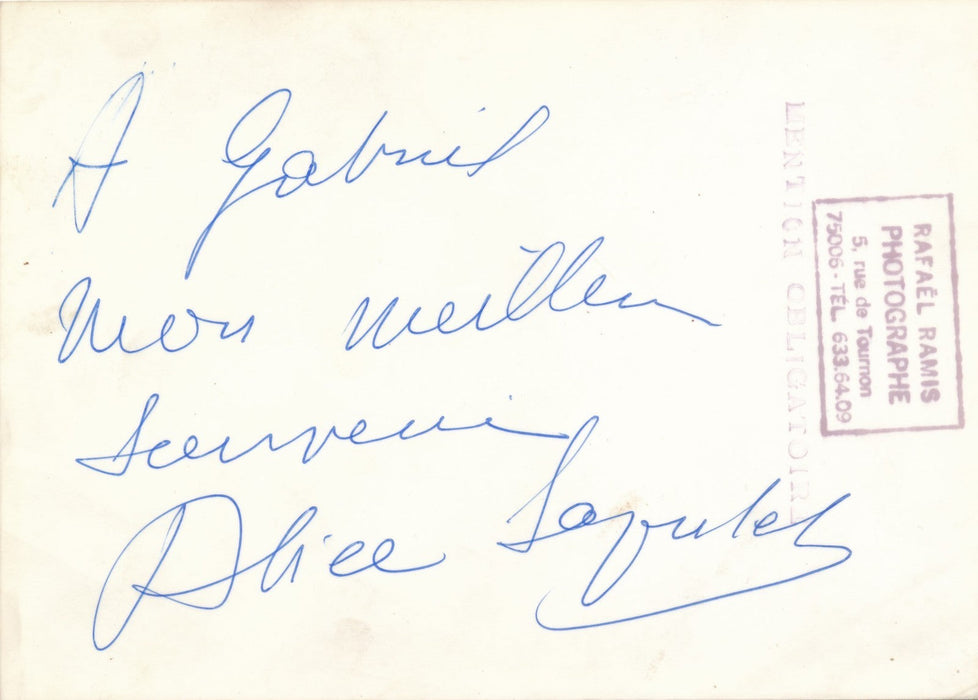 A Gabriel
Mon meilleur
souvenir
Alice Sapritch
MENTION OBLIGATOIRE
RAFAËL RAMIS
PHOTOGRAPHE
5, rue de Tournon
75006 - TÉL. 633.64.09